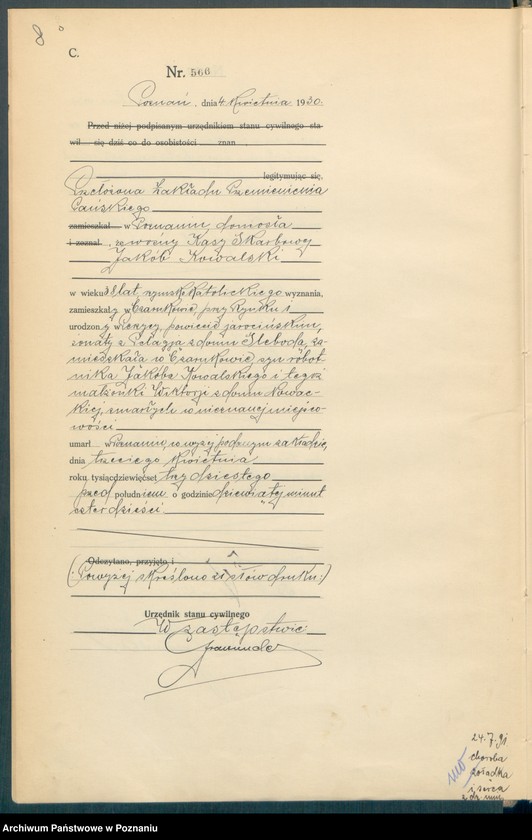 8
C.
Nr. 566
Poznań, dnia 4 Kwietnia 1930.
Przed niżej podpisanym urzędnikiem stanu cywilnego sta-
wił się dziś co do osobistości znan
legitymując się,
Przełożona Zakładu Przemienienia
Pańskiego
zamieszkał w Poznaniu, doniosła
i zeznał, że woźny Kasy Skarbowej
Jakób Kowalski
w wieku 38 lat rzymsko Katolickiego wyznania,
zamieszkały w Czarnkowie, przy Rynku 1
urodzony powiecie jarocińskim,
żonaty z Pelagją z domu Śleboda, za-
mieszkałą w Czarnkowie, syn robot-
nika Jakóba Kowalskiego i tegoż
małżonki Wiktorji z domu Nowac-
kiej, zmarłych w nieznanej miejsco-
wości
umarł w Poznaniu, w wyżej podanym zakładzie,
dnia trzeciego Kwietnia
roku tysiącdziewięćset trzydziestego
przed południem o godzinie dziewiątej minut
czterdzieści
Odczytano, przyjęto i
(Powyżej skreślono słów druku.)
Urzędnik stanu cywilnego
W zastępstwie
24.7.91
choroba
żołądka
i serca
Archiwum Państwowe w Poznaniu